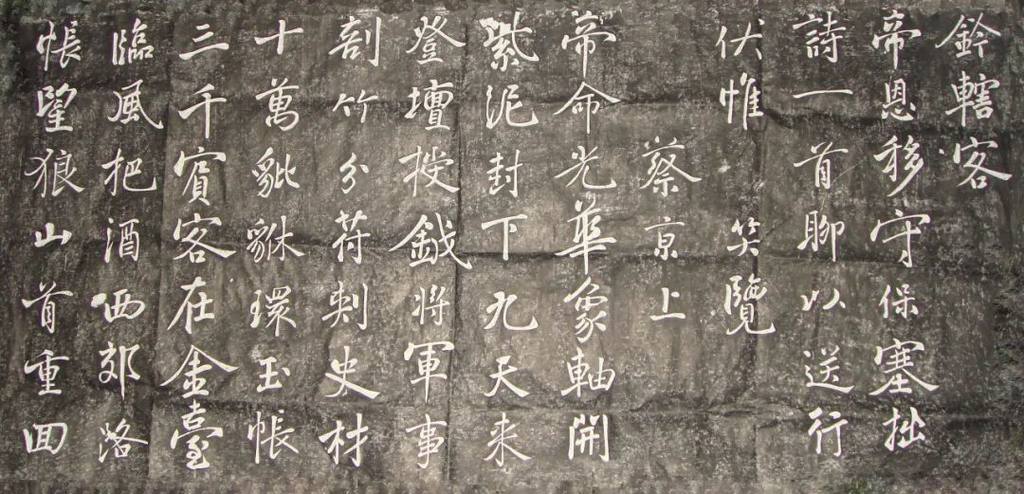 鈐轄客
帝恩移守保塞拙
詩一首聊以送行
伏惟 笑覽
蔡京上
帝命光華象軸開
紫泥封下九天来
登壇授鉞將軍事
剖竹分符刺史材
十萬貔貅環玉帳
三千賓客在金臺
臨風把酒西郊路
悵望狼山首重回